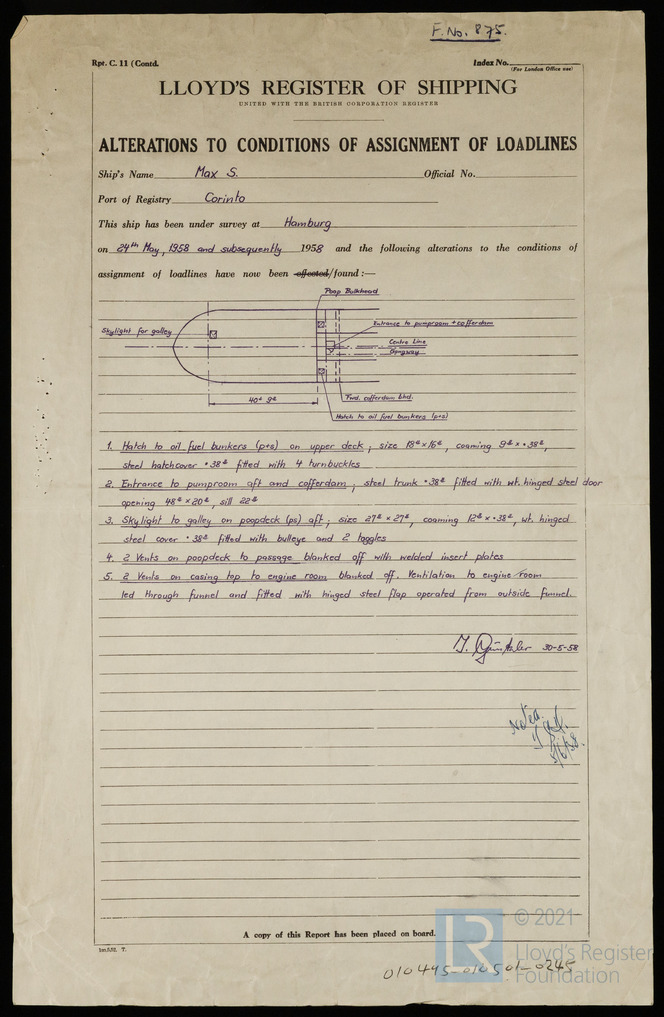 F. No. 875.
Rpt. C. 11 (Contd.
Index No.
(For London Office use)
LLOYD'S REGISTER OF SHIPPING
UNITED WITH THE BRITISH CORPORATION REGISTER
ALTERATIONS TO CONDITIONS OF ASSIGNMENT OF LOADLINES
Ship's Name Max S. Official No.
Port of Registry Corinto
This ship has been under survey at Hamburg
on 24th May, 1958 and subsequently 1958 and the following alterations to the conditions of
assignment of loadlines have now been effected/found :—
Poop Bulkhead
Skylight for galley
Entrance to pumproom + cofferdam
Centre Line
Gangway
Fwd. cofferdam bhd.
Hatch to oil fuel bunkers (p+s)
1. Hatch to oil fuel bunkers (p+s) on upper deck ; size 18" x 16", coaming 9" x .38",
steel hatchcover .38" fitted with 4 turnbuckles
2. Entrance to pumproom aft and cofferdam ; steel trunk .38" fitted with wt. hinged steel door
opening 48" x 20", sill 22"
3. Skylight to galley on poopdeck (ps) aft ; size 27" x 27", coaming 12" x .38", wt. hinged
steel cover .38" fitted with bulleye and 2 toggles
4. 2 Vents on poopdeck to passage blanked off with welded insert plates
5. 2 Vents on casing top to engine room blanked off. Ventilation to engine room
led through funnel and fitted with hinged steel flap operated from outside funnel.
30-5-58
Noted
A copy of this Report has been placed on board.
LR
© 2021
Lloyd's Register
Foundation
010495-010501-0245